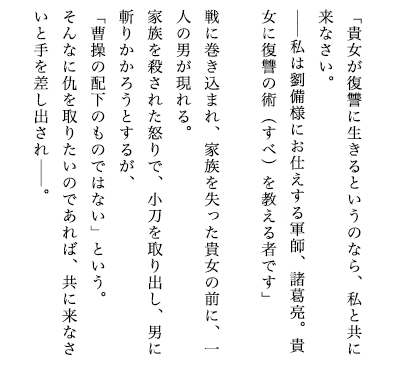 「貴女が復讐に生きるというのなら、私と共に
来なさい。
――私は劉備様にお仕えする軍師、諸葛亮。貴
女に復讐の術（すべ）を教える者です」
戦に巻き込まれ、家族を失った貴女の前に、一
人の男が現れる。
家族を殺された怒りで、小刀を取り出し、男に
斬りかかろうとするが、
「曹操の配下のものではない」という。
そんなに仇を取りたいのであれば、共に来なさ
いと手を差し出され――。